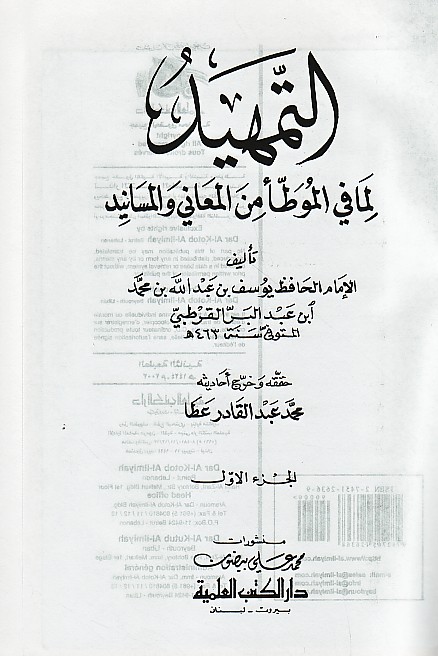 التَّمهيدُ
لِمَا في المُوَطَّأ مِنَ المَعَاني وَالمسَانِيد
تأليف
الإمَام الحَافظ يُوسُف بن عَبد اللّه بن محمَّد
ابن عَبد البَرّ القُرطبيّ
المتوفى سَنَة ٤٦٣ هـ
حَقّقه وَخرّج أحَاديثه
محمَّد عَبد القَادر عَطَا
الجُزءُ الأوّل
منشورات
محمد علي بيضون
دار الكتب العلمية
بيروت - لبنان